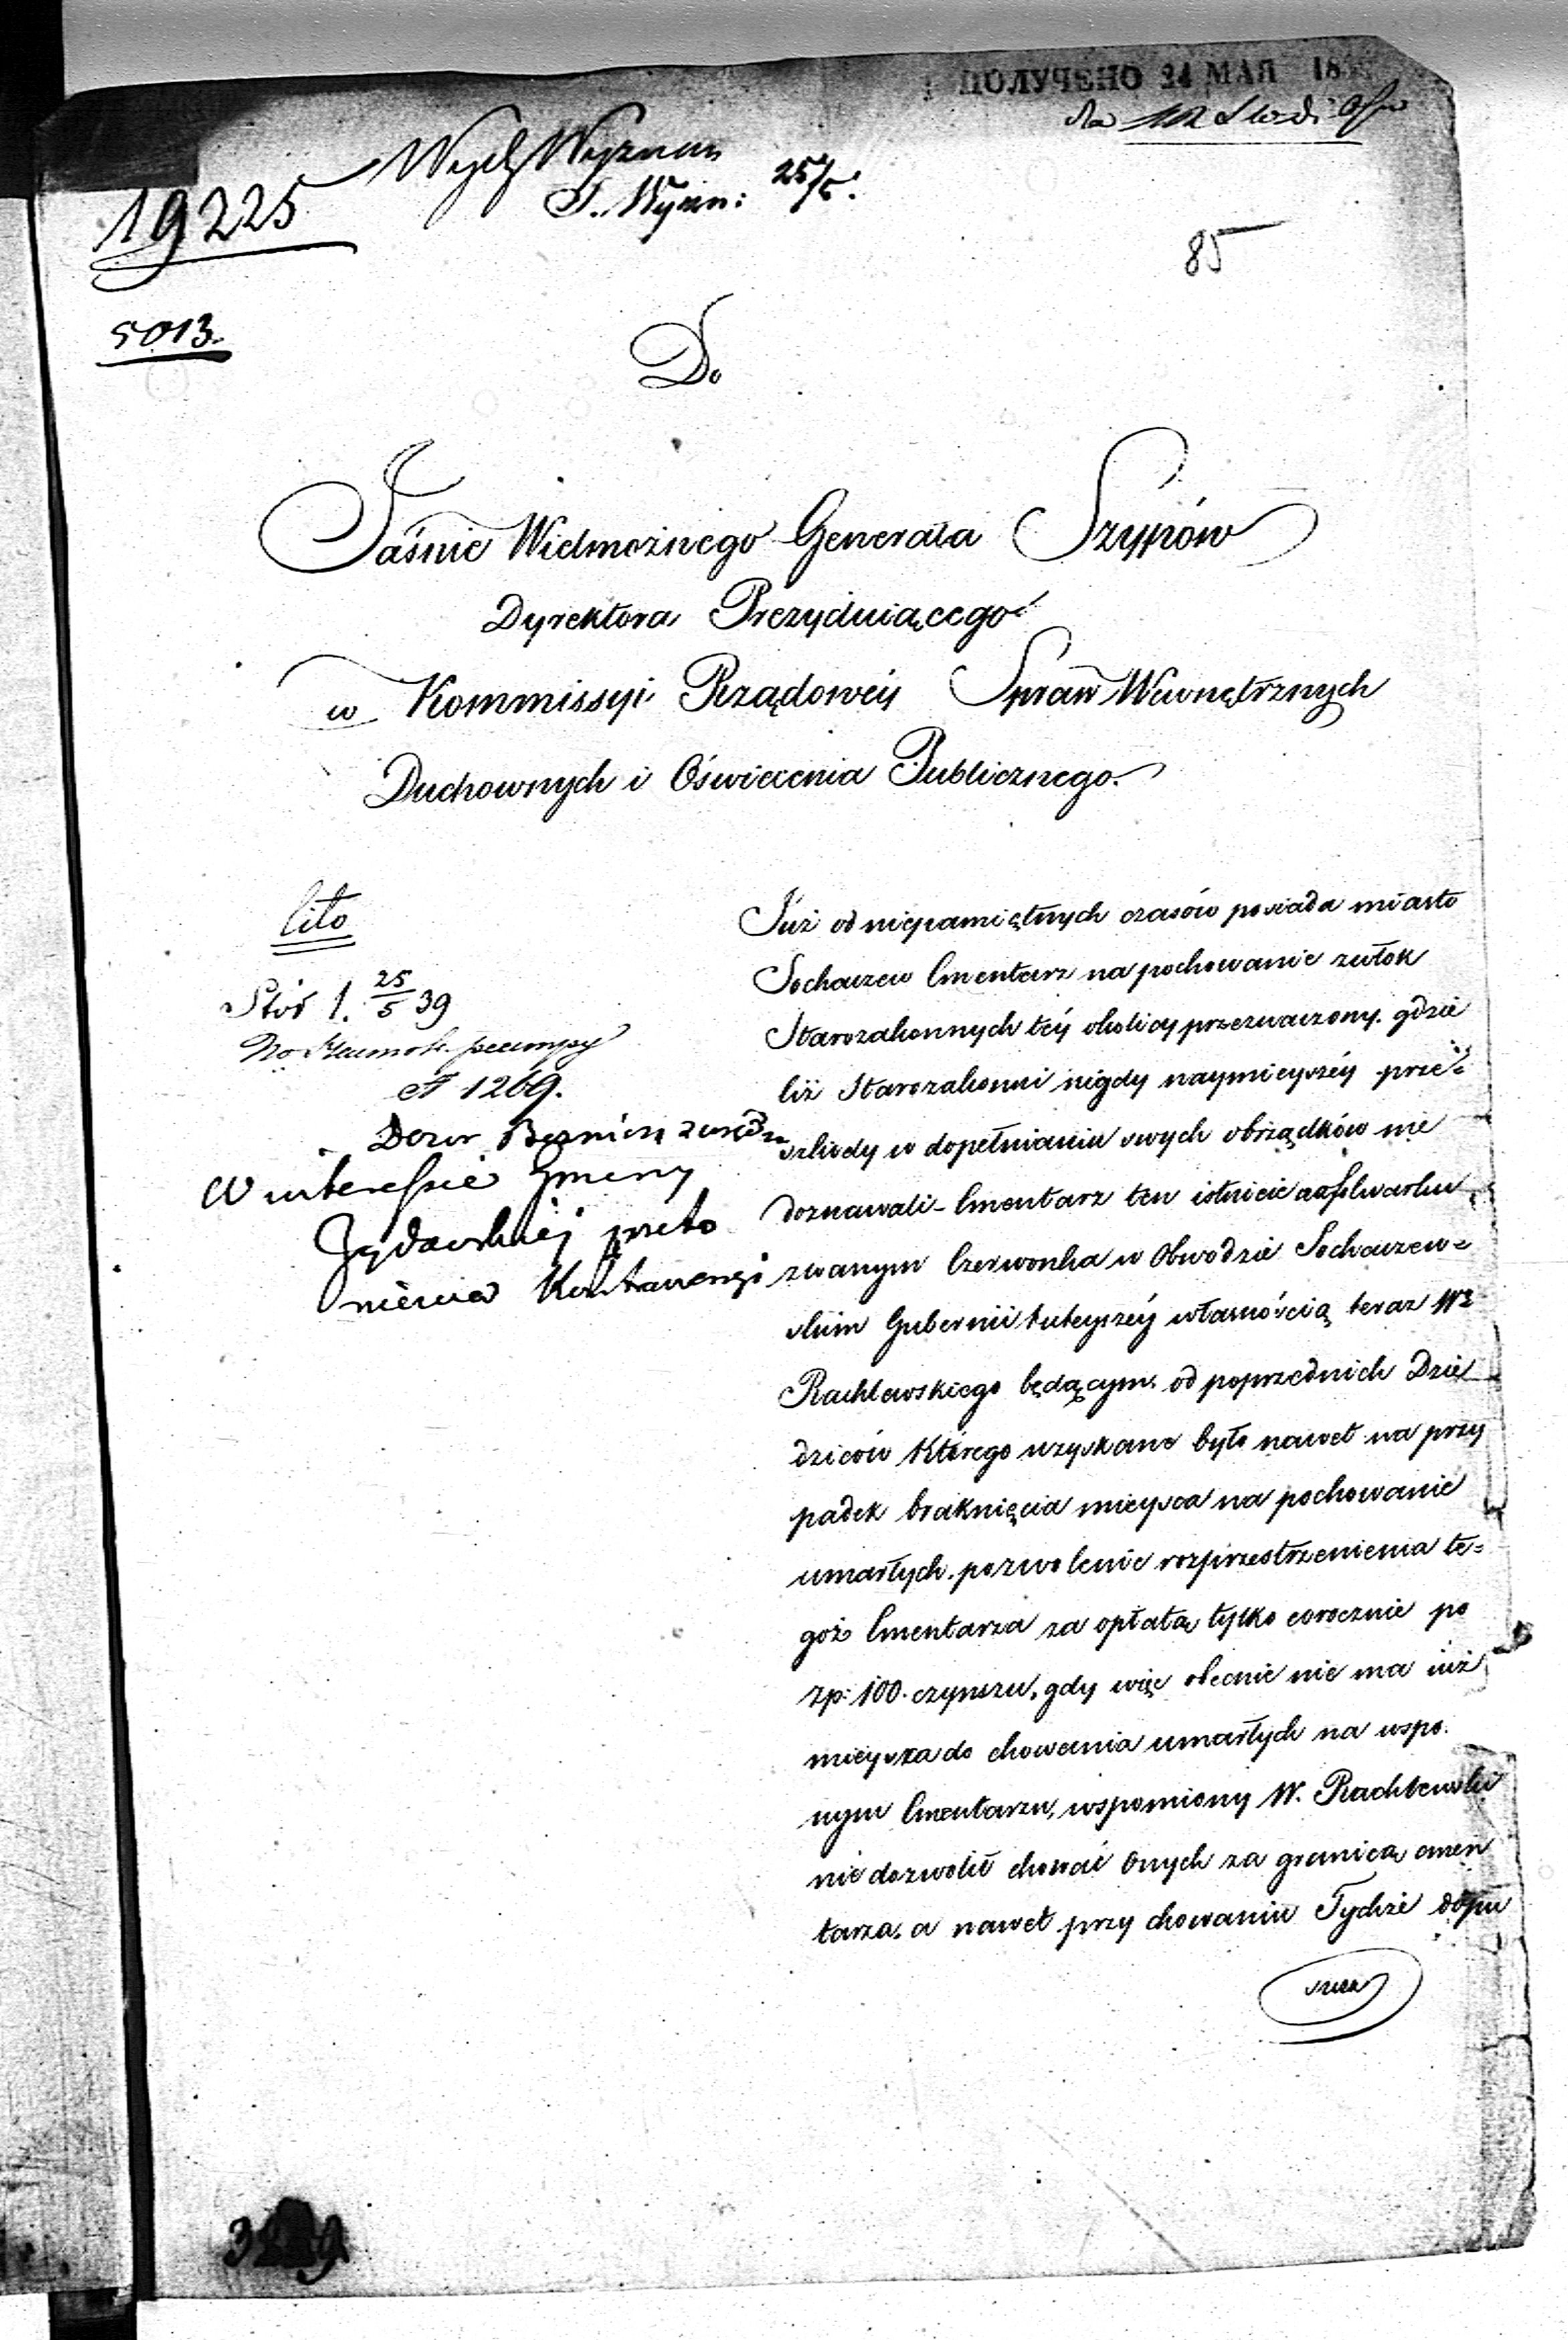 ПОЛУЧЕНО 24 МАЯ 18
19225
25/5.
85
5013.
Do
Jaśnie Wielmożnego Generała Szypów
Dyrektora Prezyduiącego
w Kommissyi Rządowéy Spraw Wewnętrznych
Duchownych i Oświecenia Publicznego.
Cito
25/5 39
1269.
W interessie Gminy
Żydowskiéj
Już od niepamiętnych czasów posiada miasto
Sochaczew Cmentarz na pochowanie zwłok
Starozakonnych téy okolicy przeznaczony. gdzie
liż Starozakonni nigdy naymieyszéy prze=
szkody w dopełnianiu swych obrządków nie
doznawali - Cmentarz ten istnieie folwarku
zwanym Czerwonka w Obwodzie Sochaczew=
skim Gubernii tuteyszéy własnością teraz W
Rachlewskiego będącym. od poprzednich Dzie
dziców którego uzyskane było nawet na przy
padek braknięcia mieysca na pochowanie
umarłych. pozwolenie rozprzestrzenienia te=
goż Cmentarza za opłatą tylko corocznie po
zp: 100. czynszu, gdy więc obecnie nie ma iuż
mieysca do chowania umarłych na wspo.
nym Cmentarzu, wspomiony W. Rachlewski
nie dozwolił chować Onych za granicą cmen
tarza. a nawet przy chowaniu Tychże dopu
szcza